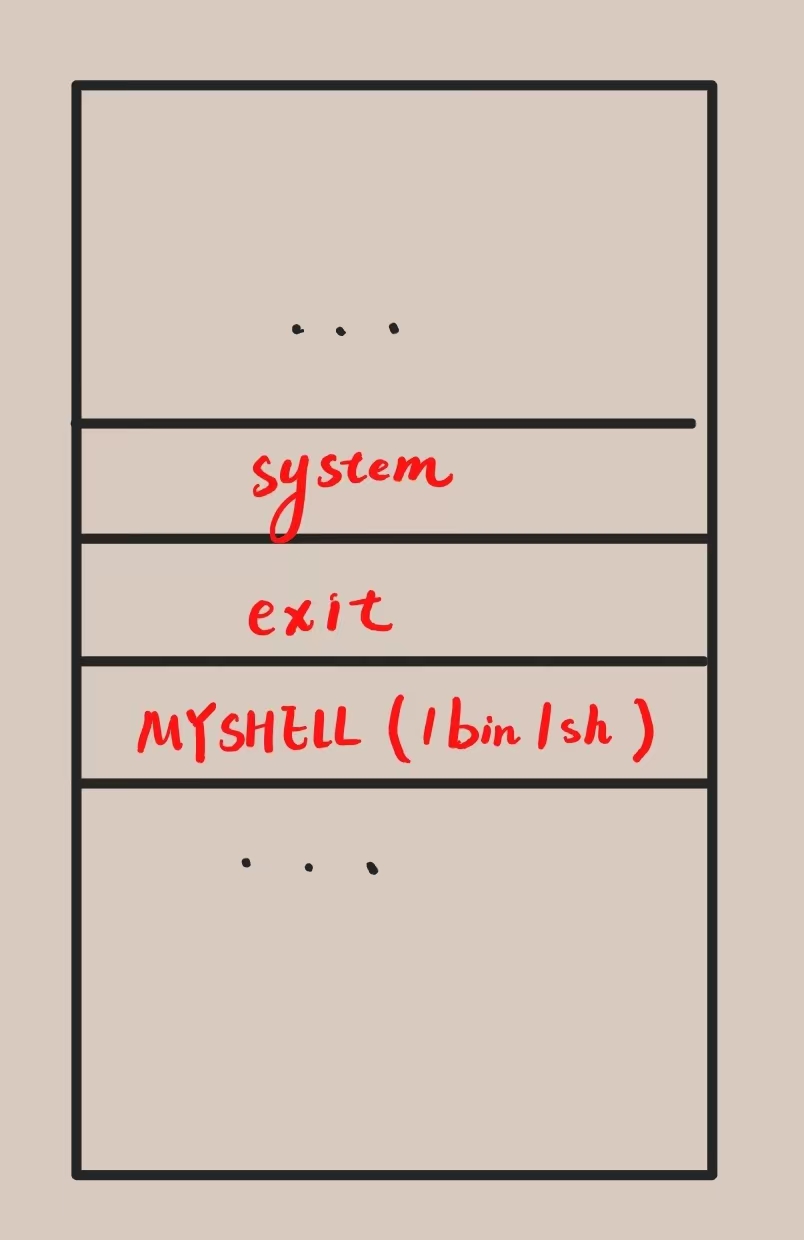 ...
system
exit
MYSHELL (/bin/sh)
...